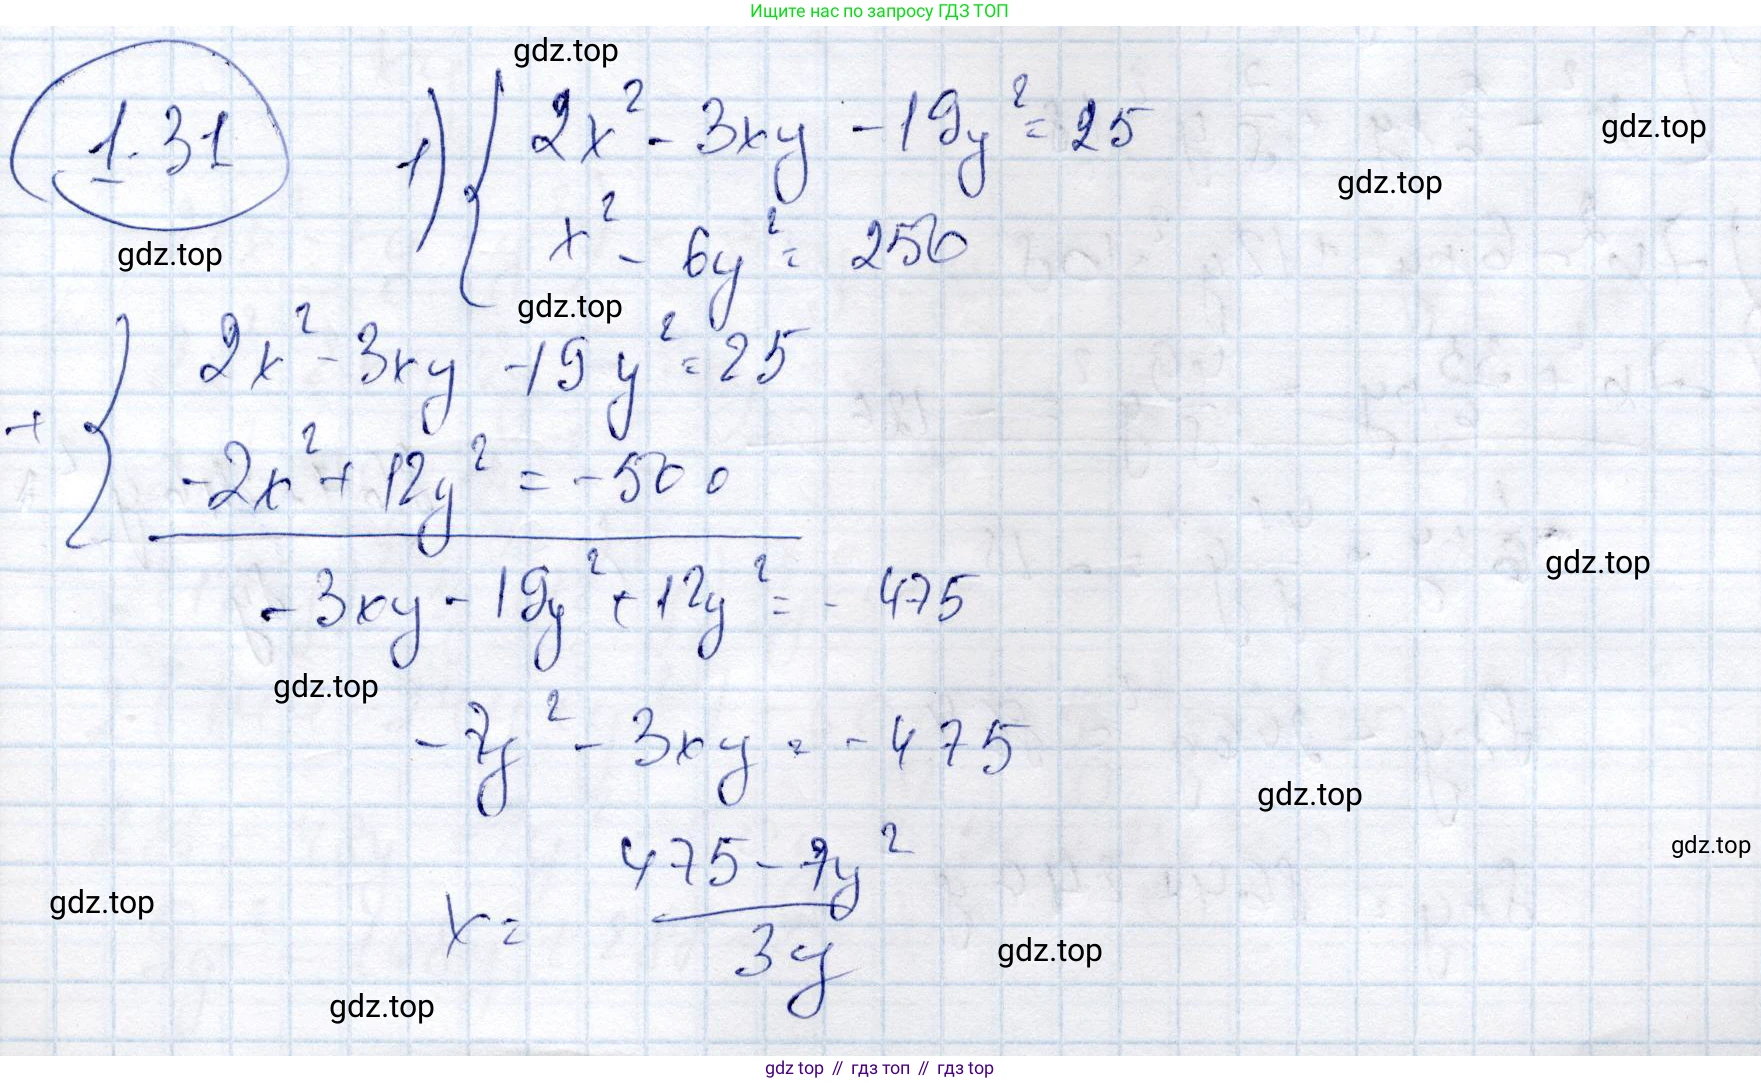 Ищите нас по запросу ГДЗ ТОП
gdz.top
1.31 1) { 2x² - 3xy - 19y² = 25
gdz.top
gdz.top
x² - 6y² = 250
gdz.top
gdz.top
+ { 2x² - 3xy - 19y² = 25
-2x² + 12y² = -500
gdz.top
-3xy - 19y² + 12y² = - 475
gdz.top
-7y² - 3xy = -475
gdz.top
gdz.top
x = 475 - 7y² / 3y
gdz.top
gdz.top
gdz.top
gdz top // гдз топ // gdz top